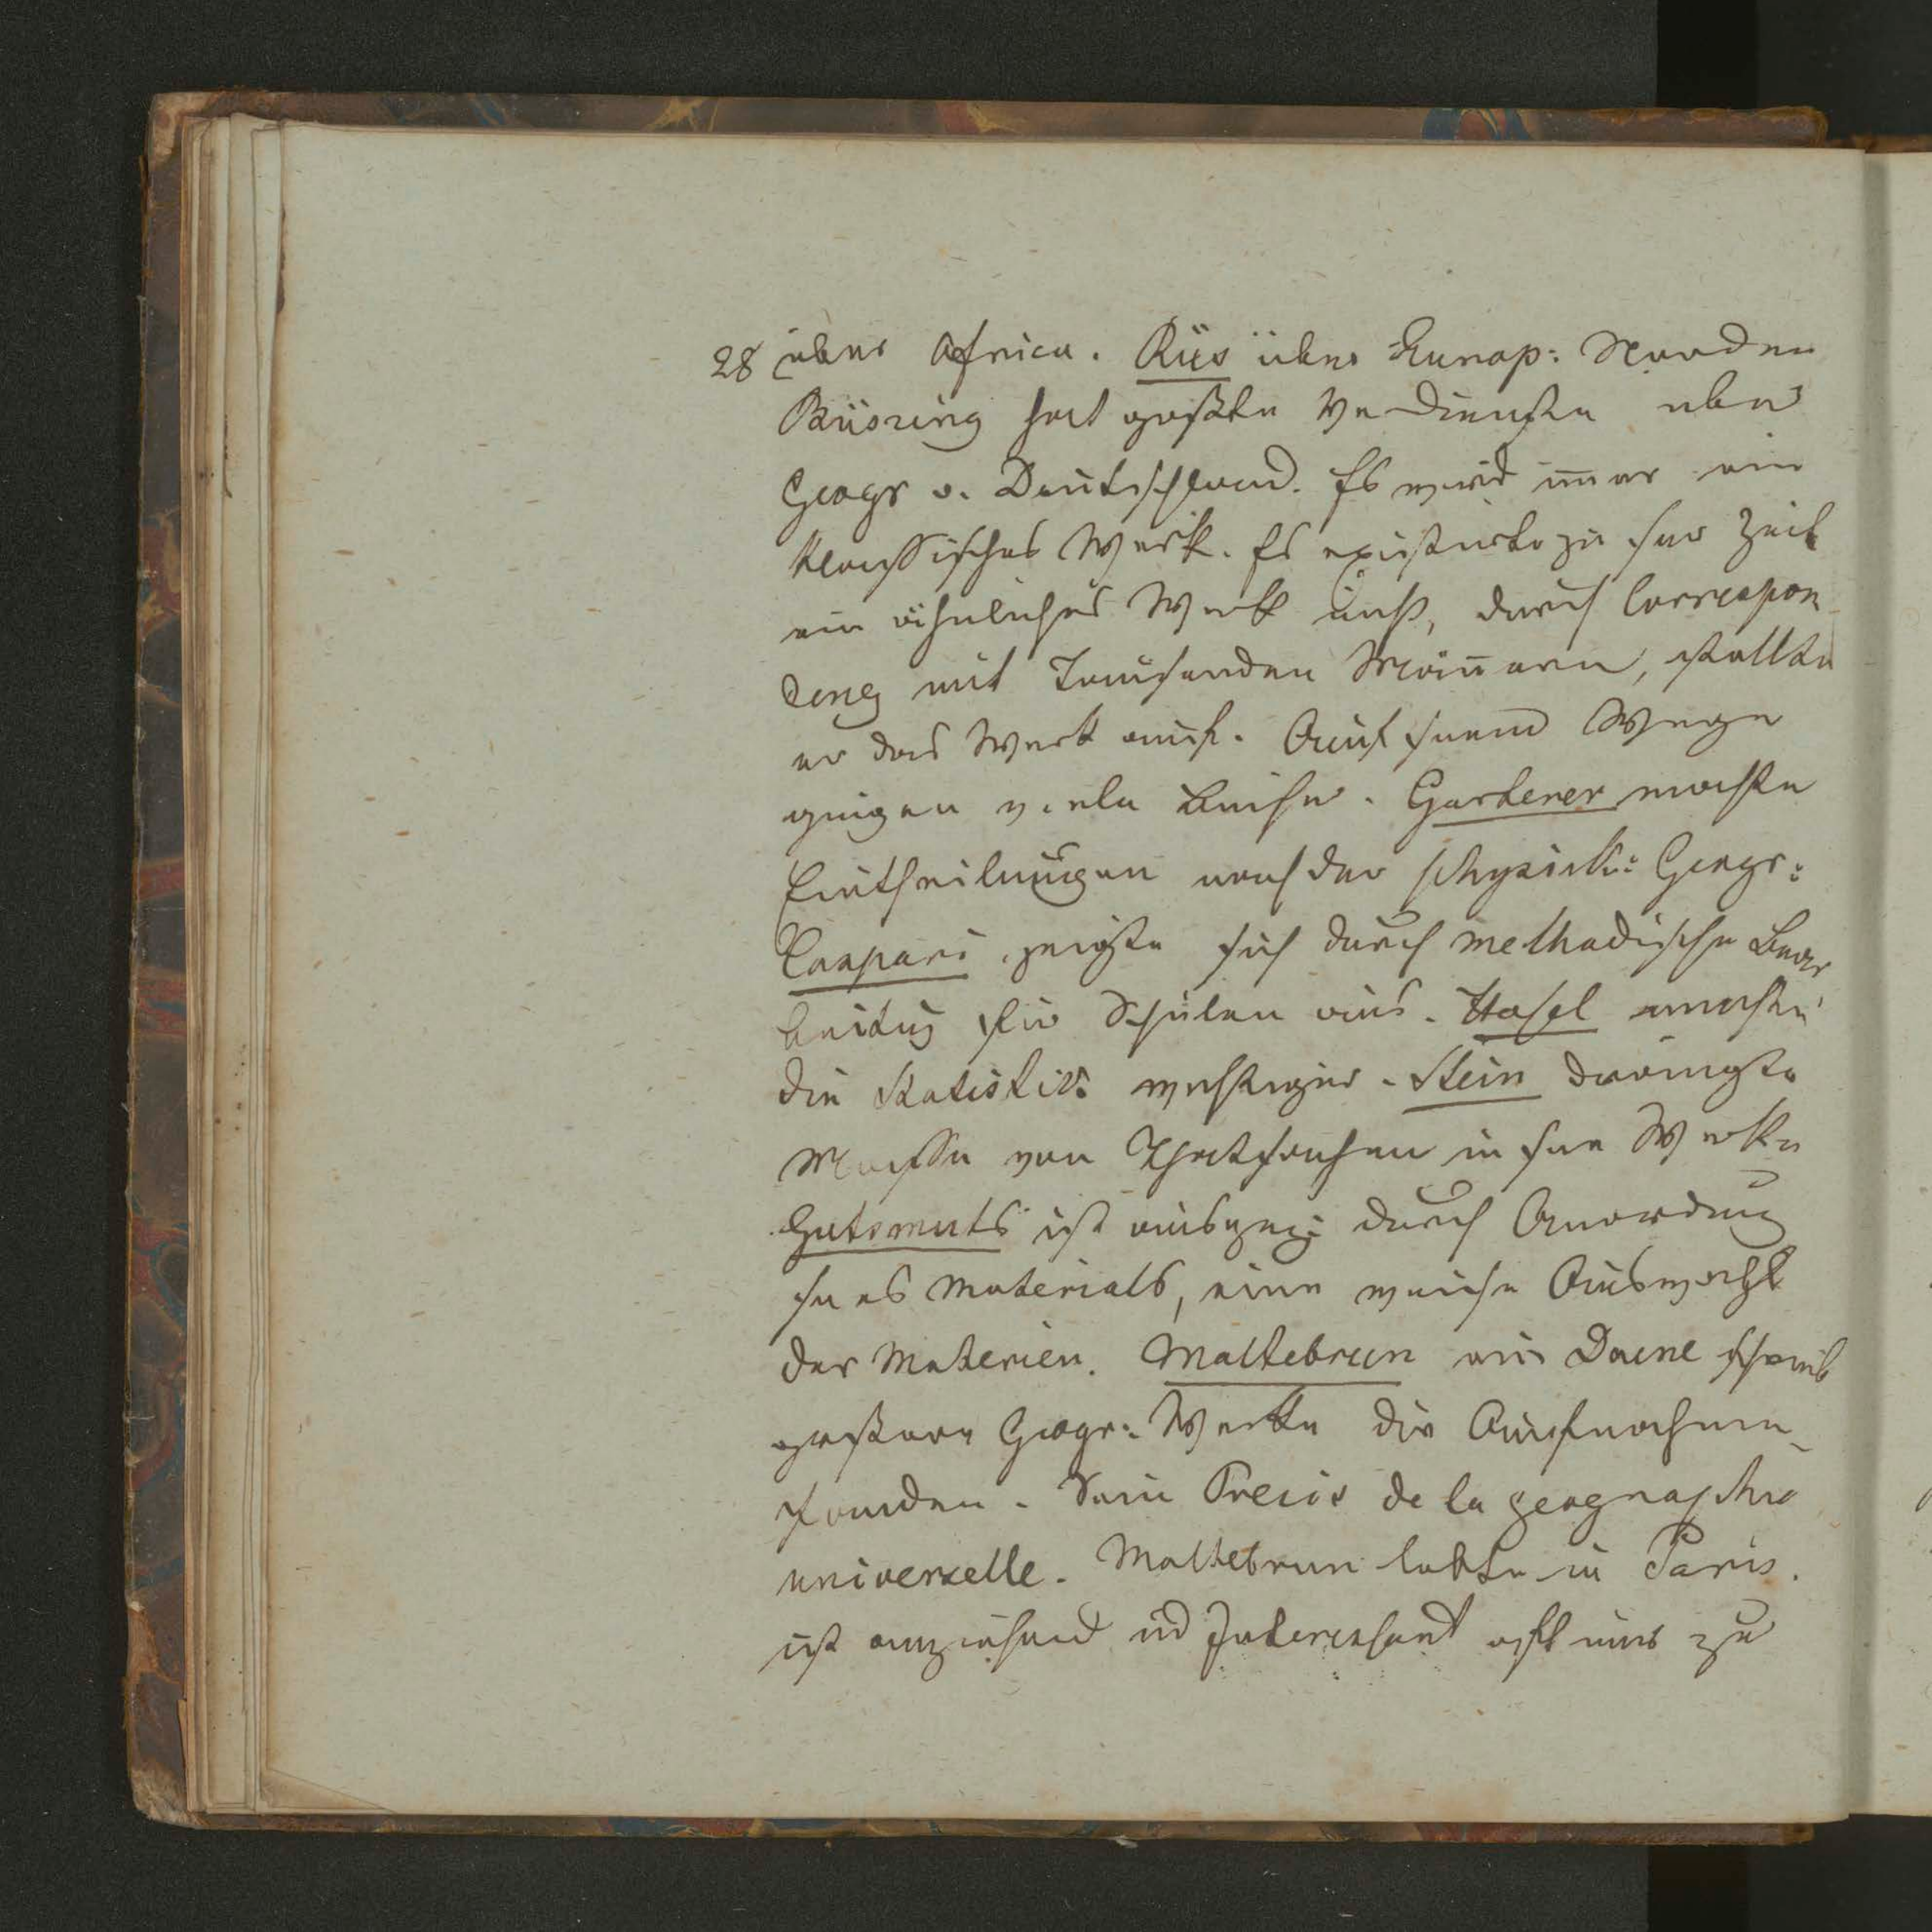 28 über Africa. Rüs über Europ: Norden
Büsring hat größte Verdienste uber
Geogr v. Deutschland. Es wird im̅er ein
klassisches Werk. Es existirte zu sr Zeit
ein ähnliches Werk nicht, durch Correspon
denz mit Tausenden Män̅ern, stellte
er das Werk auf. Auf seinem Wege
gingen viele Leiser. Garterer machte
Eintheilungen nach der physick: Geogr:
Caspari zeigte sich durch methodische Bear
beitung für Schulen aus. Hasel machte
die Statistik: wichtiger. Stein draengte
Masse von Thatsachen in sein Werke
Gutsmuts ist ausgez: durch Anordnung
seines Materials, eine weise Auswahl
der Materien. Maltebrun ein Daene schrieb
größere Geogr: Werke die Aufnahme
fanden. Sein Precis de la geographie
universelle. Maltebrun lebte in Paris.
ist anziehend ud Interessant oft nur zu